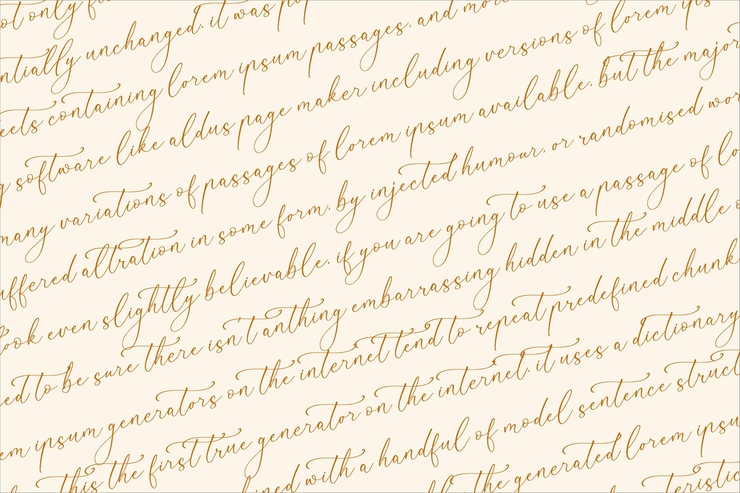 not only
ntially unchanged. it was
eets containing lorem ipsum passages. and more
g software like aldus page maker including versions of lorem ips
many variations of passages of lorem ipsum available. but the major
uffered altration in some form. by injected humour. or randomised wor
look even slightly believable. if you are going to use a passage of lo
ed to be sure there isn't anthing embarrassing hidden in the middle o
em ipsum generators on the internet tend to repeat predefined chunk
this the first true generator on the internet. it uses a dictionary
ined with a handful of model sentence struct
the generated lorem ipsu
teristic